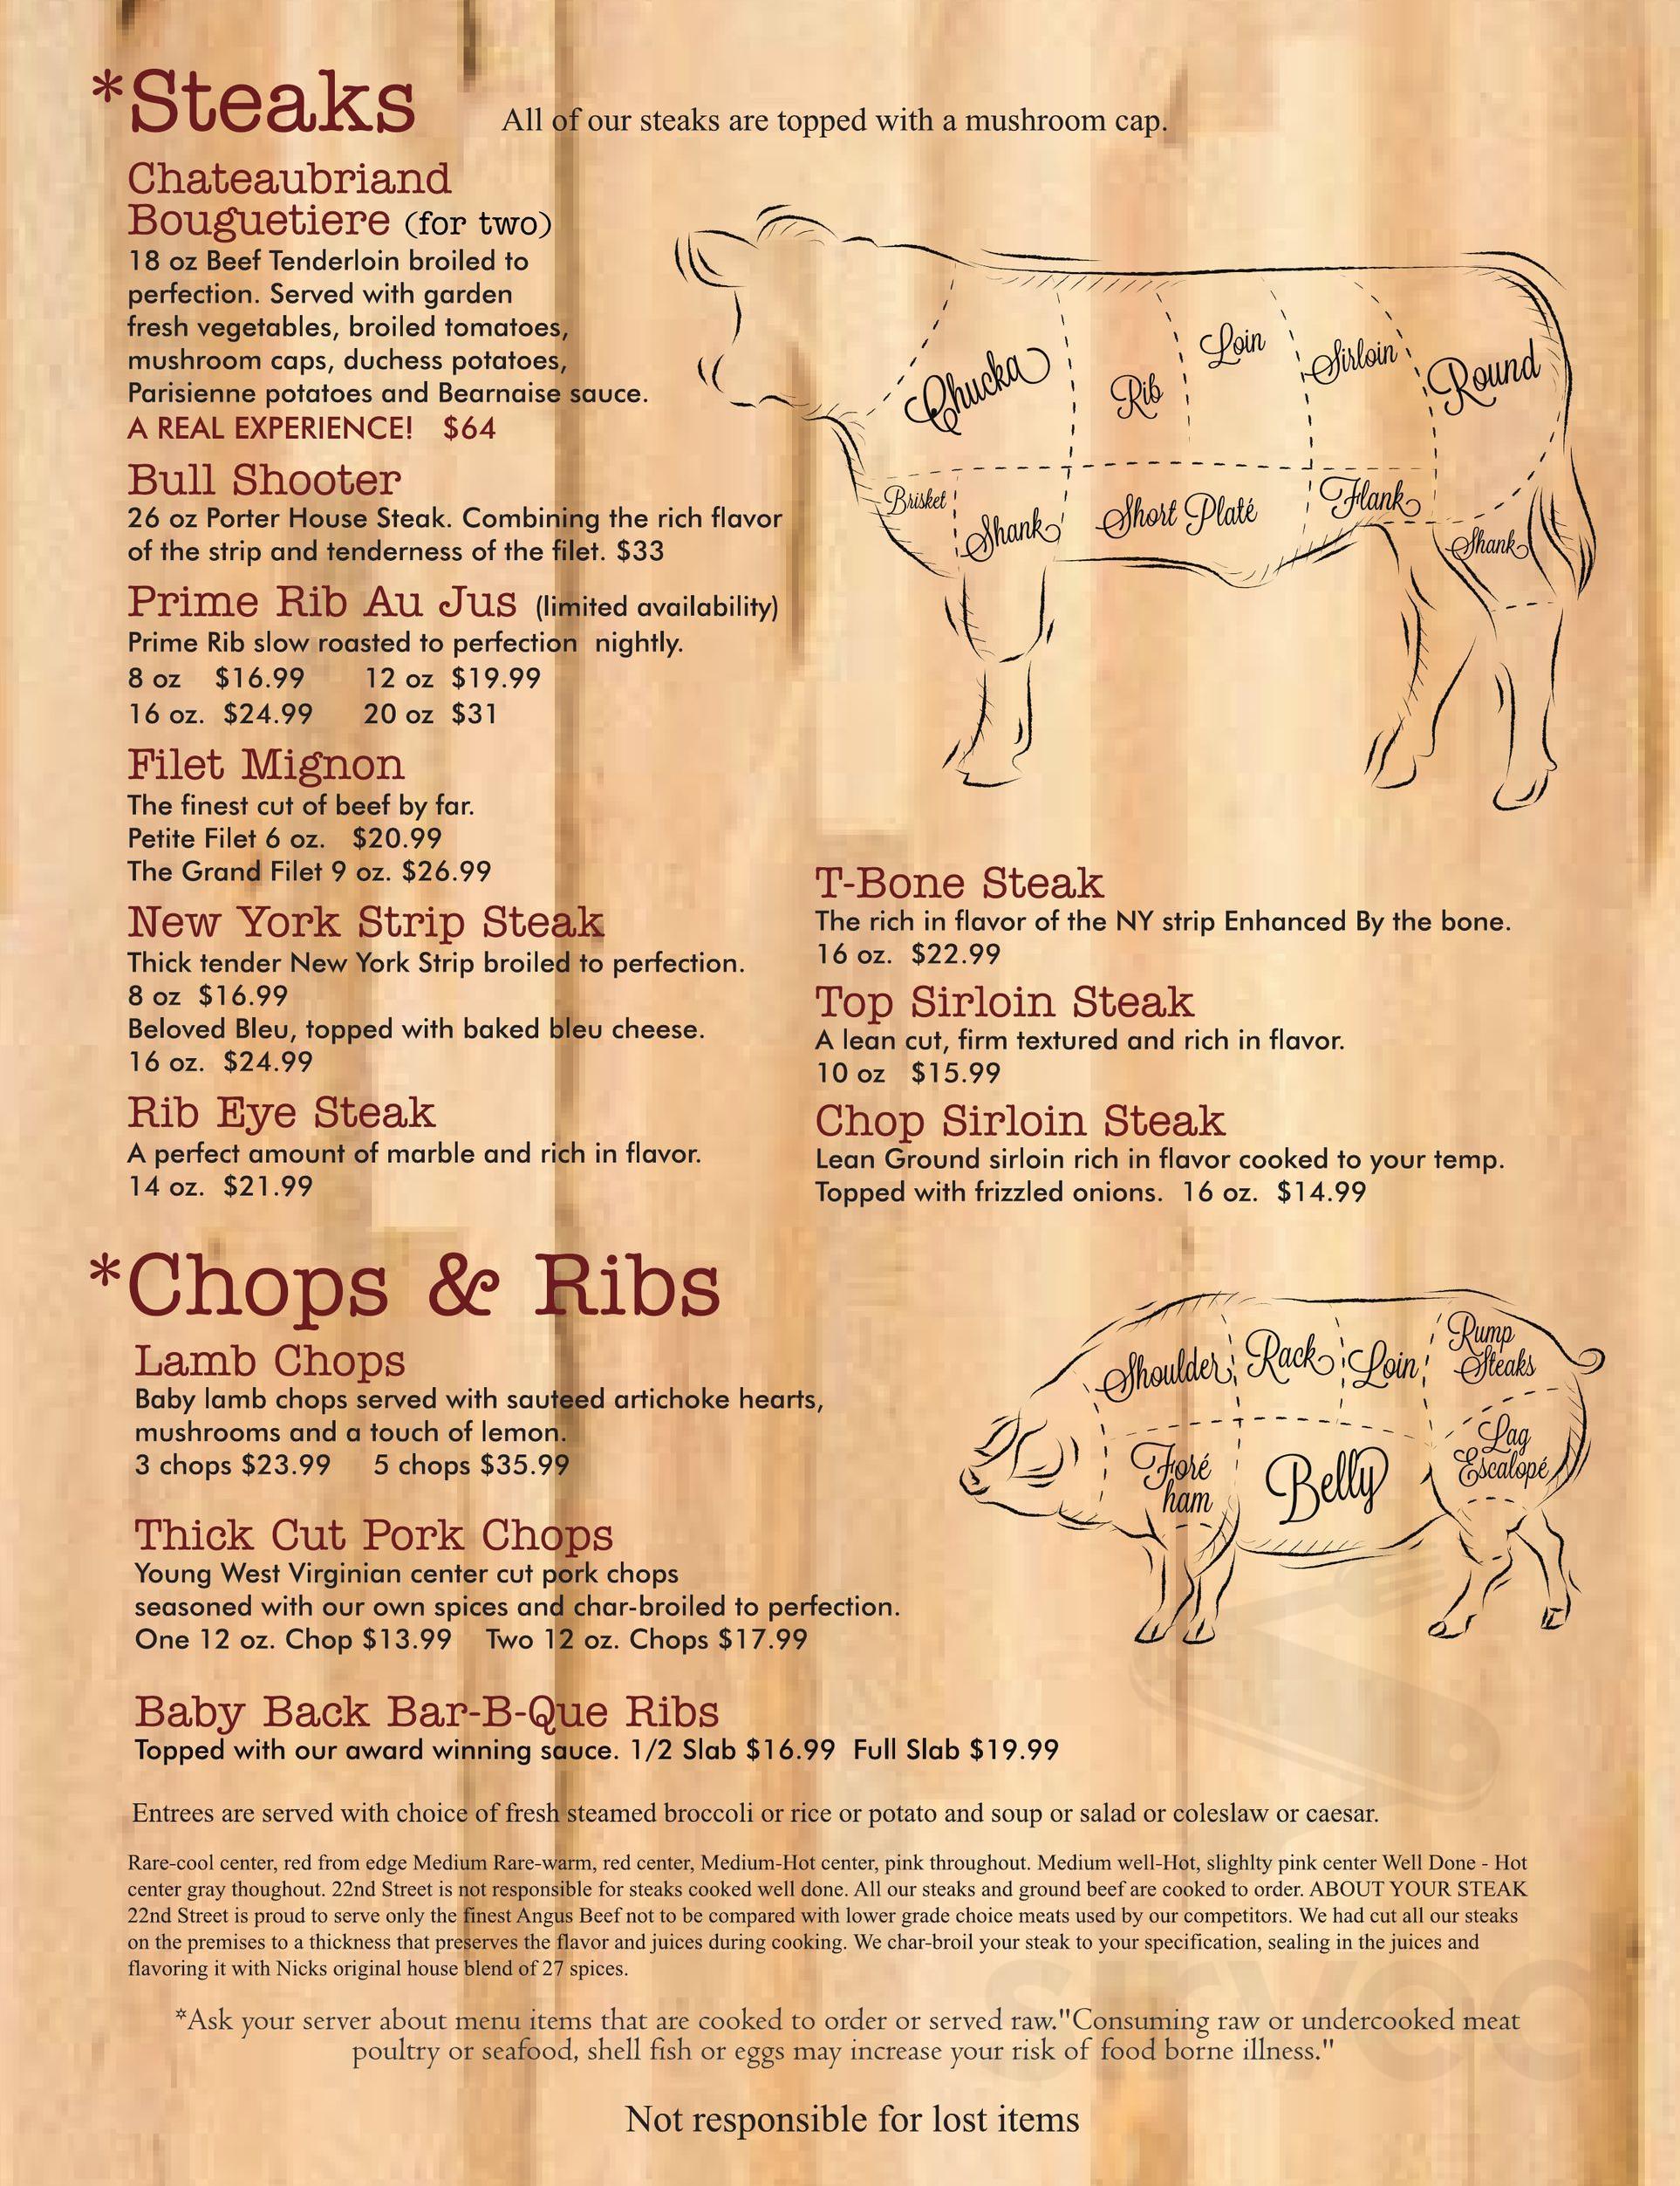 *Steaks
All of our steaks are topped with a mushroom cap.
Chateaubriand
Bouguetiere (for two)
18 oz Beef Tenderloin broiled to
perfection. Served with garden
fresh vegetables, broiled tomatoes,
mushroom caps, duchess potatoes,
Parisienne potatoes and Bearnaise sauce.
A REAL EXPERIENCE! $64
Bull Shooter
26 oz Porter House Steak. Combining the rich flavor
of the strip and tenderness of the filet. $33
Prime Rib Au Jus (limited availability)
Prime Rib slow roasted to perfection nightly.
8 oz $16.99 12 oz $19.99
16 oz. $24.99 20 oz $31
Filet Mignon
The finest cut of beef by far.
Petite Filet 6 oz. $20.99
The Grand Filet 9 oz. $26.99
New York Strip Steak
Thick tender New York Strip broiled to perfection.
8 oz $16.99
Beloved Bleu, topped with baked bleu cheese.
16 oz. $24.99
Rib Eye Steak
A perfect amount of marble and rich in flavor.
14 oz. $21.99
Chucka
Rib
Loin
Sirloin
Round
Brisket
Shank
Short Platé
Flank
Shank
T-Bone Steak
The rich in flavor of the NY strip Enhanced By the bone.
16 oz. $22.99
Top Sirloin Steak
A lean cut, firm textured and rich in flavor.
10 oz $15.99
Chop Sirloin Steak
Lean Ground sirloin rich in flavor cooked to your temp.
Topped with frizzled onions. 16 oz. $14.99
*Chops & Ribs
Lamb Chops
Baby lamb chops served with sauteed artichoke hearts,
mushrooms and a touch of lemon.
3 chops $23.99 5 chops $35.99
Thick Cut Pork Chops
Young West Virginian center cut pork chops
seasoned with our own spices and char-broiled to perfection.
One 12 oz. Chop $13.99 Two 12 oz. Chops $17.99
Baby Back Bar-B-Que Ribs
Topped with our award winning sauce. 1/2 Slab $16.99 Full Slab $19.99
Shoulder
Rack
Loin
Rump
Steaks
Foré
ham
Belly
Lag
Escalopé
Entrees are served with choice of fresh steamed broccoli or rice or potato and soup or salad or coleslaw or caesar.
Rare-cool center, red from edge Medium Rare-warm, red center, Medium-Hot center, pink throughout. Medium well-Hot, slighlty pink center Well Done - Hot
center gray thoughout. 22nd Street is not responsible for steaks cooked well done. All our steaks and ground beef are cooked to order. ABOUT YOUR STEAK
22nd Street is proud to serve only the finest Angus Beef not to be compared with lower grade choice meats used by our competitors. We had cut all our steaks
on the premises to a thickness that preserves the flavor and juices during cooking. We char-broil your steak to your specification, sealing in the juices and
flavoring it with Nicks original house blend of 27 spices.
*Ask your server about menu items that are cooked to order or served raw."Consuming raw or undercooked meat
poultry or seafood, shell fish or eggs may increase your risk of food borne illness."
Not responsible for lost items
sirved